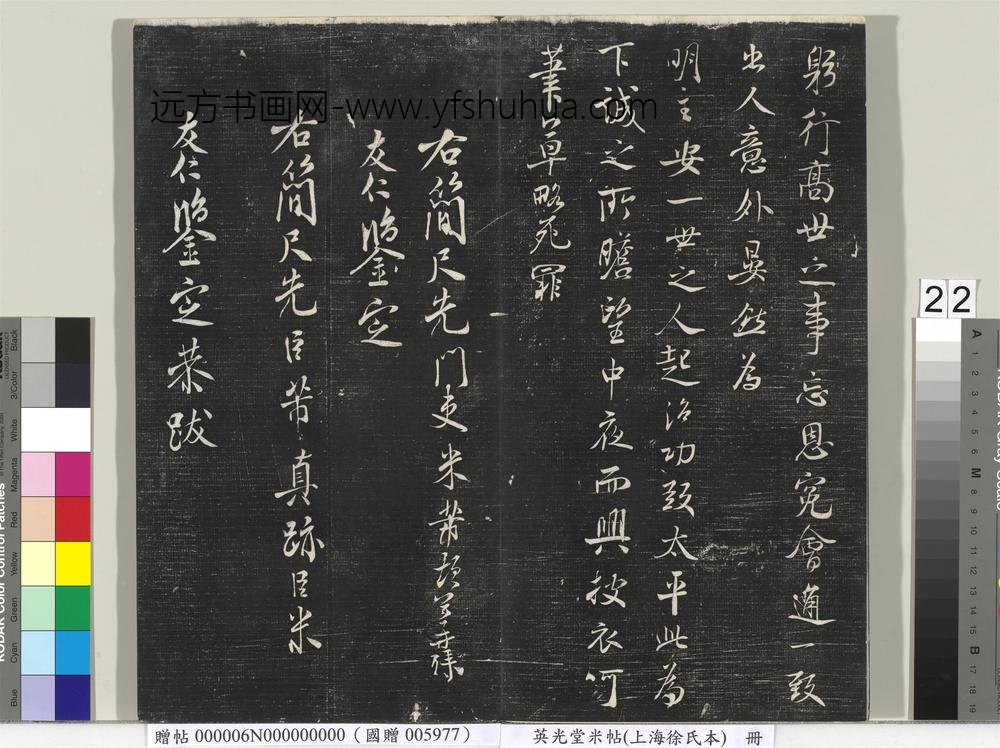 躬行高世之事忘恩冤會通一致
出人意外晏然為
明主安一世之人起治功致太平此為
下誠之所瞻望中夜而興披衣呵
筆草略死罪
右簡尺先門吏米芾
友仁鑒定
右簡尺先臣芾真跡臣米
友仁鑒定恭跋
远方书画网-www.yfshuhua.com
22
KODAK Color Control Patches
LICENSED PRODUCT
Black
3/Color
White
Magenta
Red
Yellow
Green
Cyan
Blue
A
1
2
3
4
5
6
M
8
9
10
11
12
13
14
15
B
17
18
19
贈帖 000006N000000000（國贈 005977）
英光堂米帖(上海徐氏本) 冊